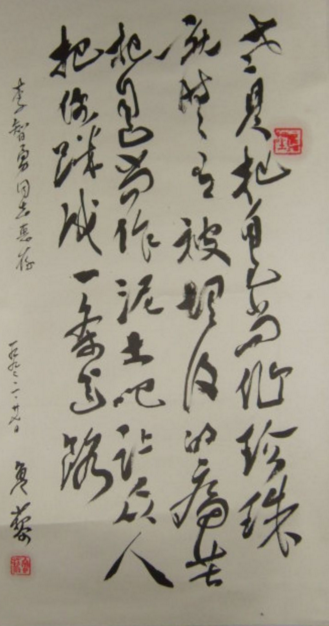 老是把自己当作珍珠
就时时有被埋没的痛苦
把自己当作泥土吧让众人
把你踩成一条道路
李智勇同志惠存
一九九二
鲁藜